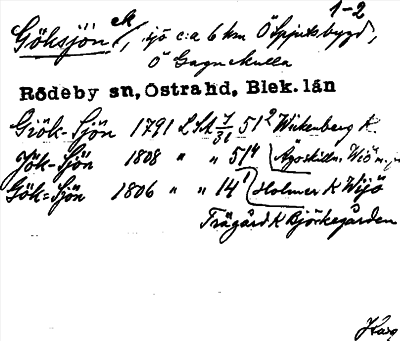 1-2
Göksjön ek/, sjö c:a 6 km Ö Spjutsbygd,
Ö Gagnekulla
Rödeby sn, Östra hd, Blek. län
Giök-Sjön 1791 LSA 51² Wickenberg K.
Jök-Sjön 1808 " " 51⁴ Ägoskilln.
Gök=Sjön 1806 " " 14¹ Holmer K Wijö
Trägård K Björkegården